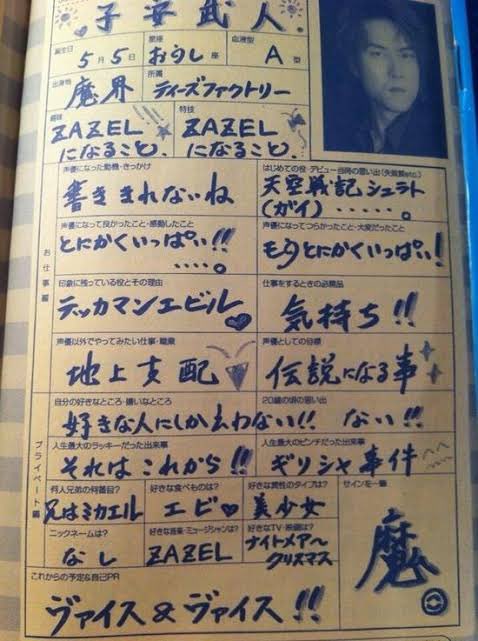 子安武人
誕生日 5月5日 星座 おうし座 血液型 A型
出身地 魔界 所属 ティーズファクトリー
趣味 ZAZELになること。 特技 ZAZELになること。
お仕事編
声優になった動機・きっかけ
書ききれないね
はじめての役・デビュー当時の思い出(失敗談etc.)
天空戦記シュラト
(ガイ)・・・・・。
声優になって良かったこと・感動したこと
とにかくいっぱぃ!!
・・・・・。
声優になってつらかったこと・大変だったこと
もうとにかくいっぱぃ!
印象に残っている役とその理由
テッカマンエビル
仕事をするときの必需品
気持ち!!
声優以外でやってみたい仕事・職業
地上支配
声優としての目標
伝説になる事
プライベート編
自分の好きなところ・嫌いなところ
好きな人にしか云わない!!
20歳の頃の思い出
ない!!
人生最大のラッキーだった出来事
それはこれから!!
人生最大のピンチだった出来事
ギリシャ事件
何人兄弟の何番目?
兄はミカエル
好きな食べものは?
エビ
好きな異性のタイプは?
美少女
サインを一筆
魔
ニックネームは?
なし
好きな音楽・ミュージシャンは?
ZAZEL
好きなTV・映画は?
ナイトメアー
クリスマス
これからの予定&自己PR
ヴァイス&ヴァイス!!